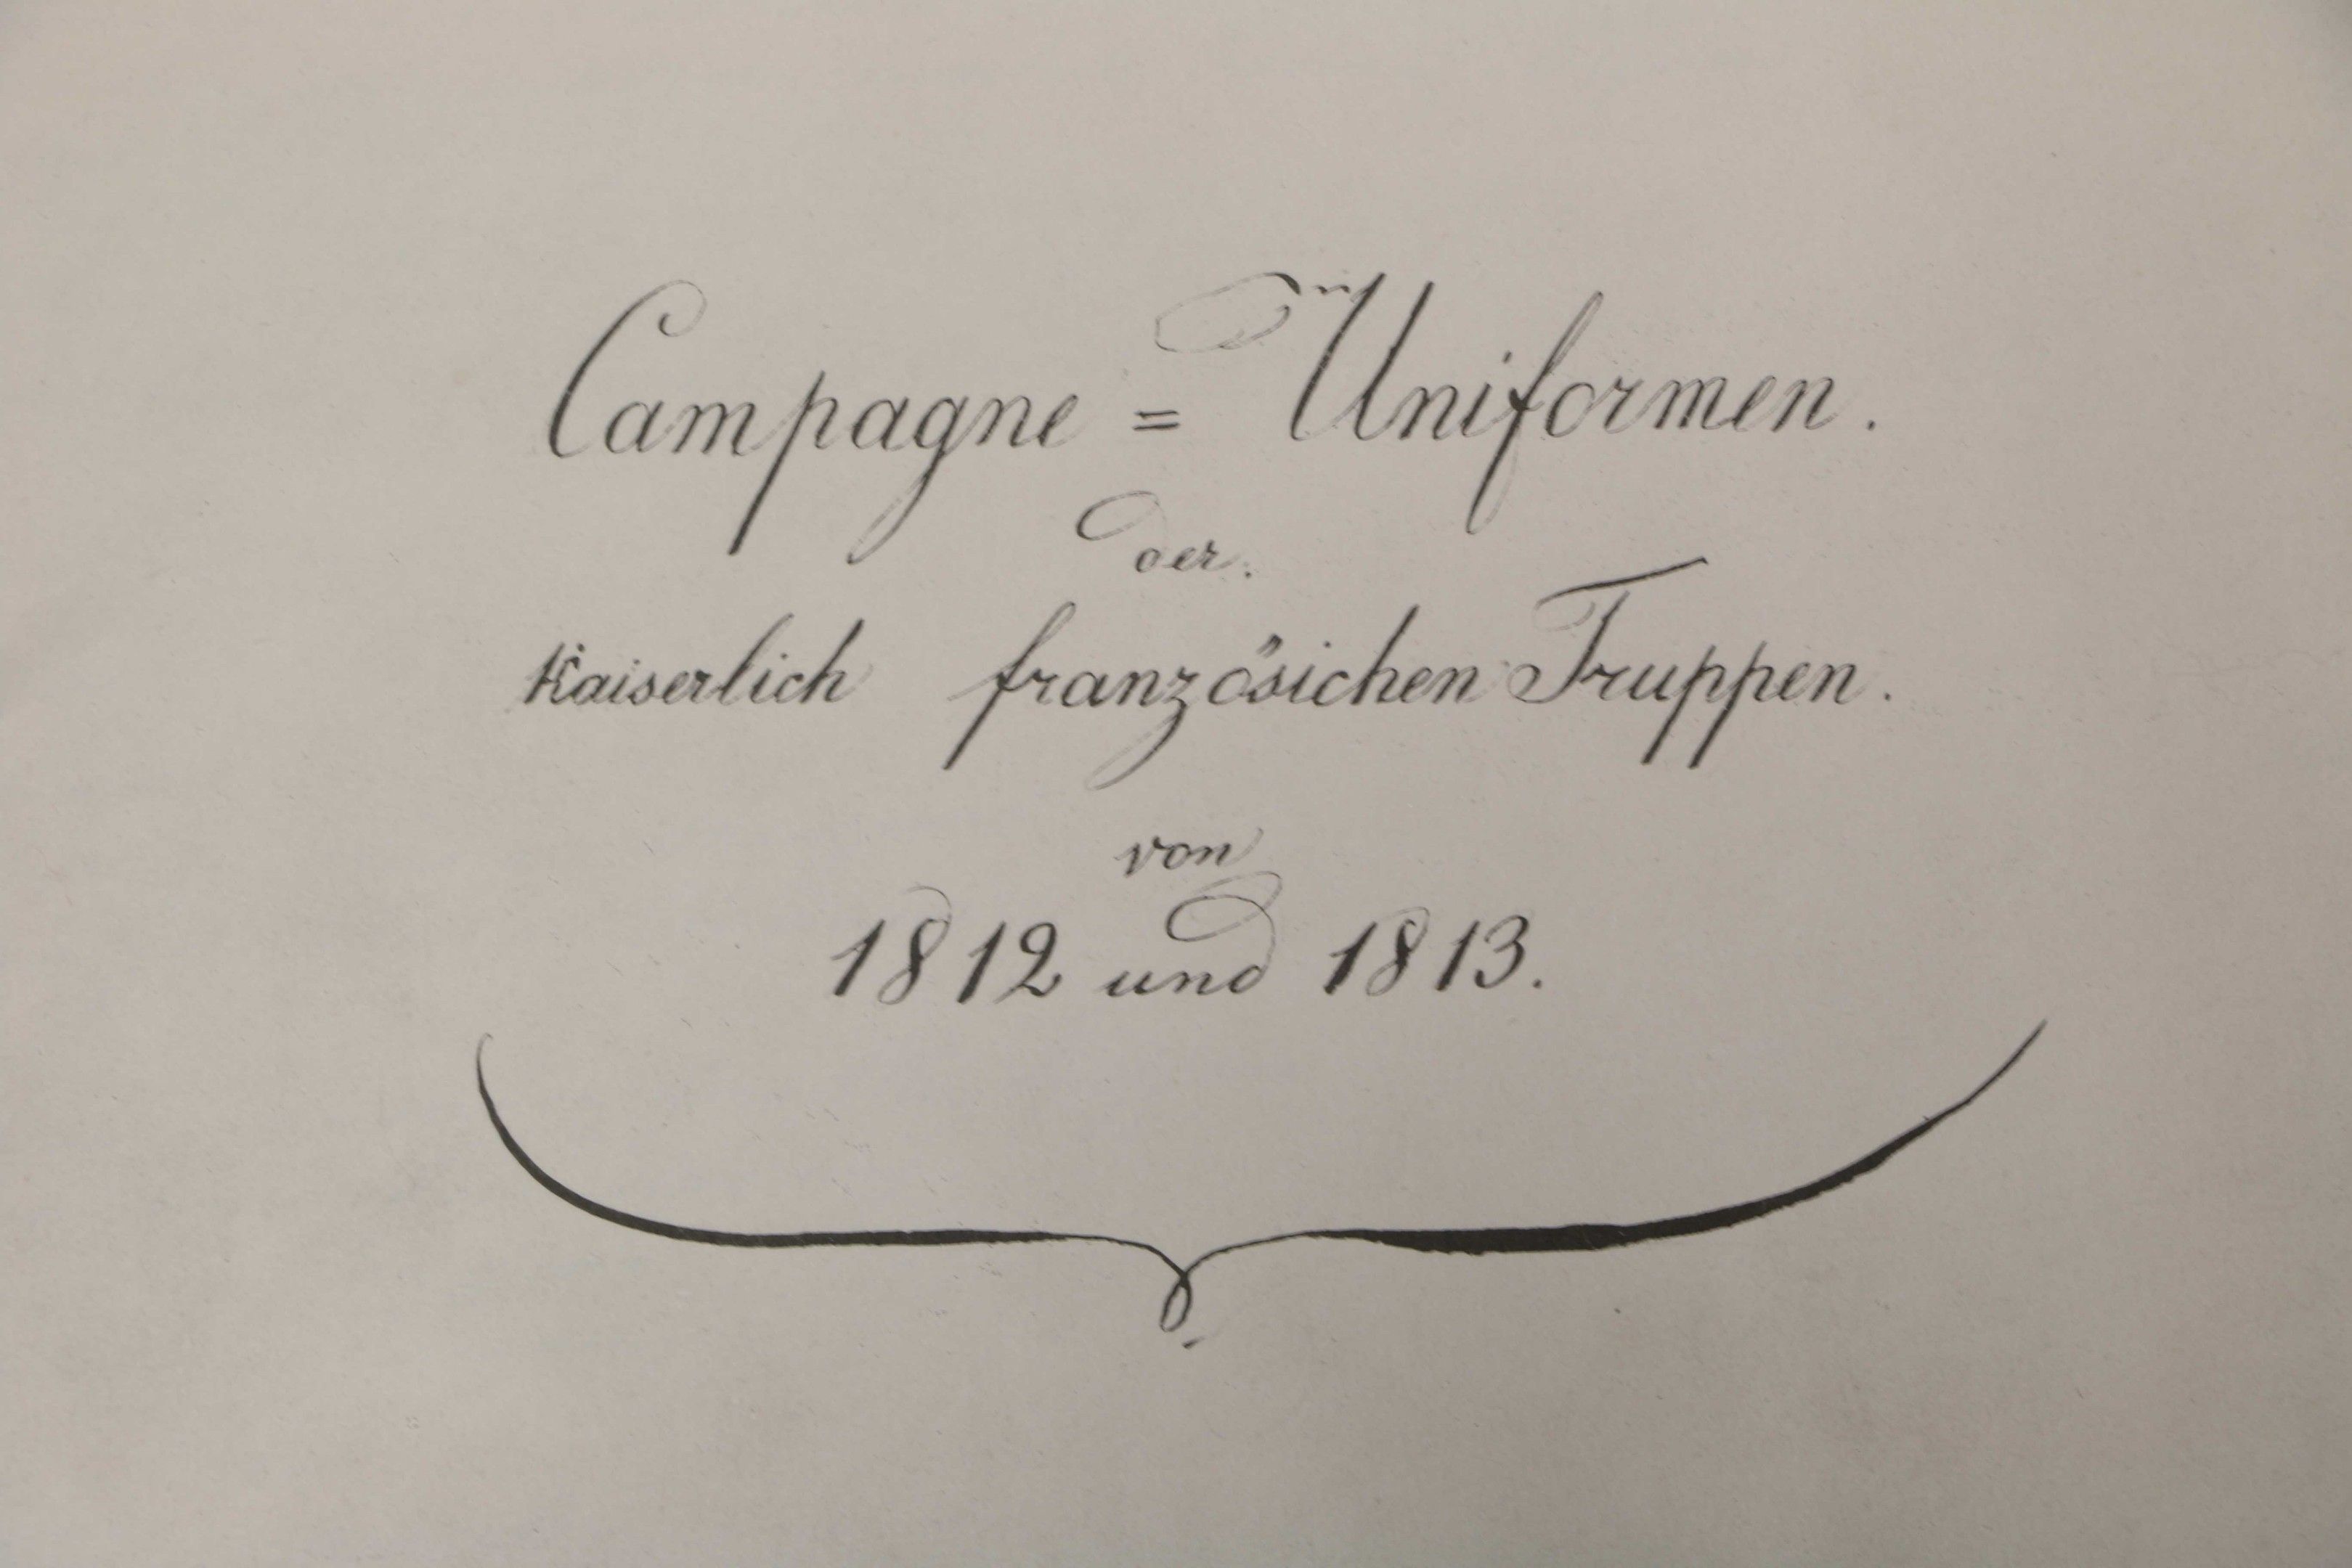 Campagne = Uniformen.
der.
Kaiserlich französichen Truppen.
von
1812 und 1813.